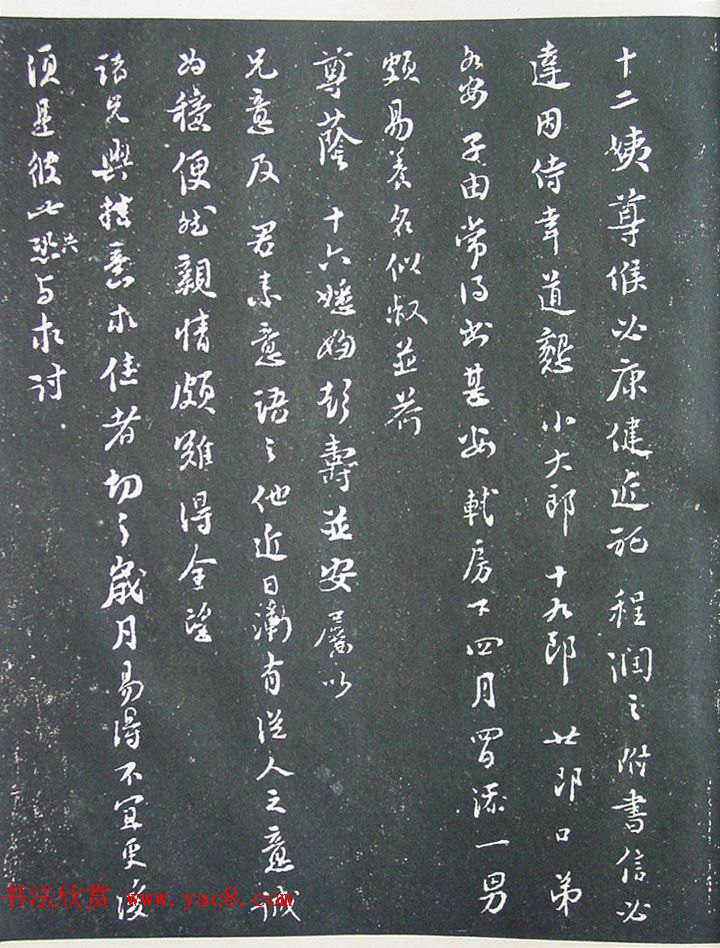 十二姨尊候必康健近託程潤之附書信必
達因侍韋道懇小大郎十九郎廿郎口弟
安子由常得書甚安軾房下四月間添一男
頗易養名似叔並荷
尊蔭十六嫂婦彭壽並安屬以
兄意及君素意語之他近日漸有從人之意誠
為穩便然親情頗難得全望
諸兄與推意求佳者切切歲月易得不宜更後
須是彼此共與求討
书法欣赏 www.yac8.com